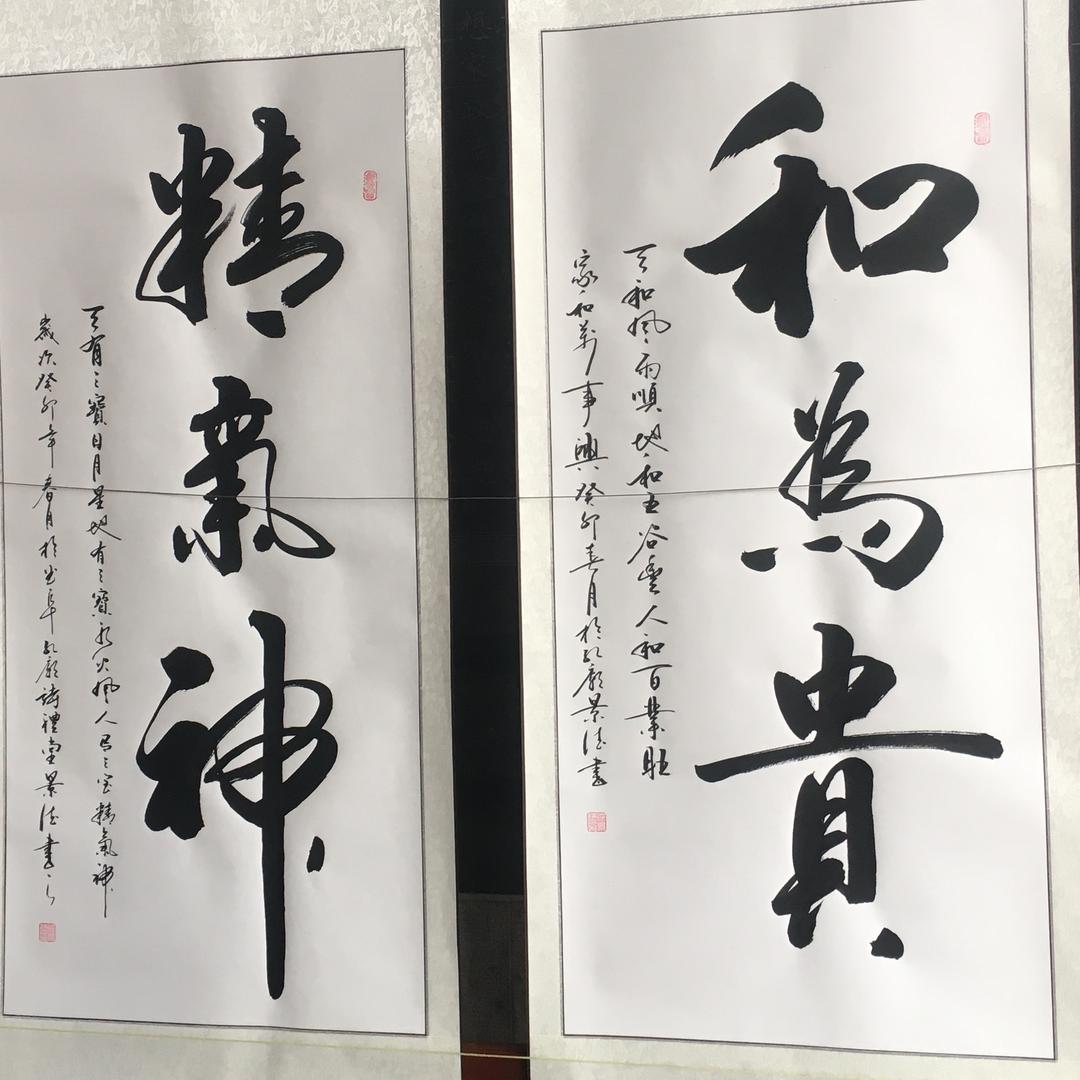 和為貴
天和風雨順地和五谷豐人和百業旺
家和萬事興癸卯春月於孔廟景法書
精氣神
天有三寶日月星地有三寶水火風人有三宝精氣神
歲次癸卯年春月於曲阜孔廟詩禮堂景法書之